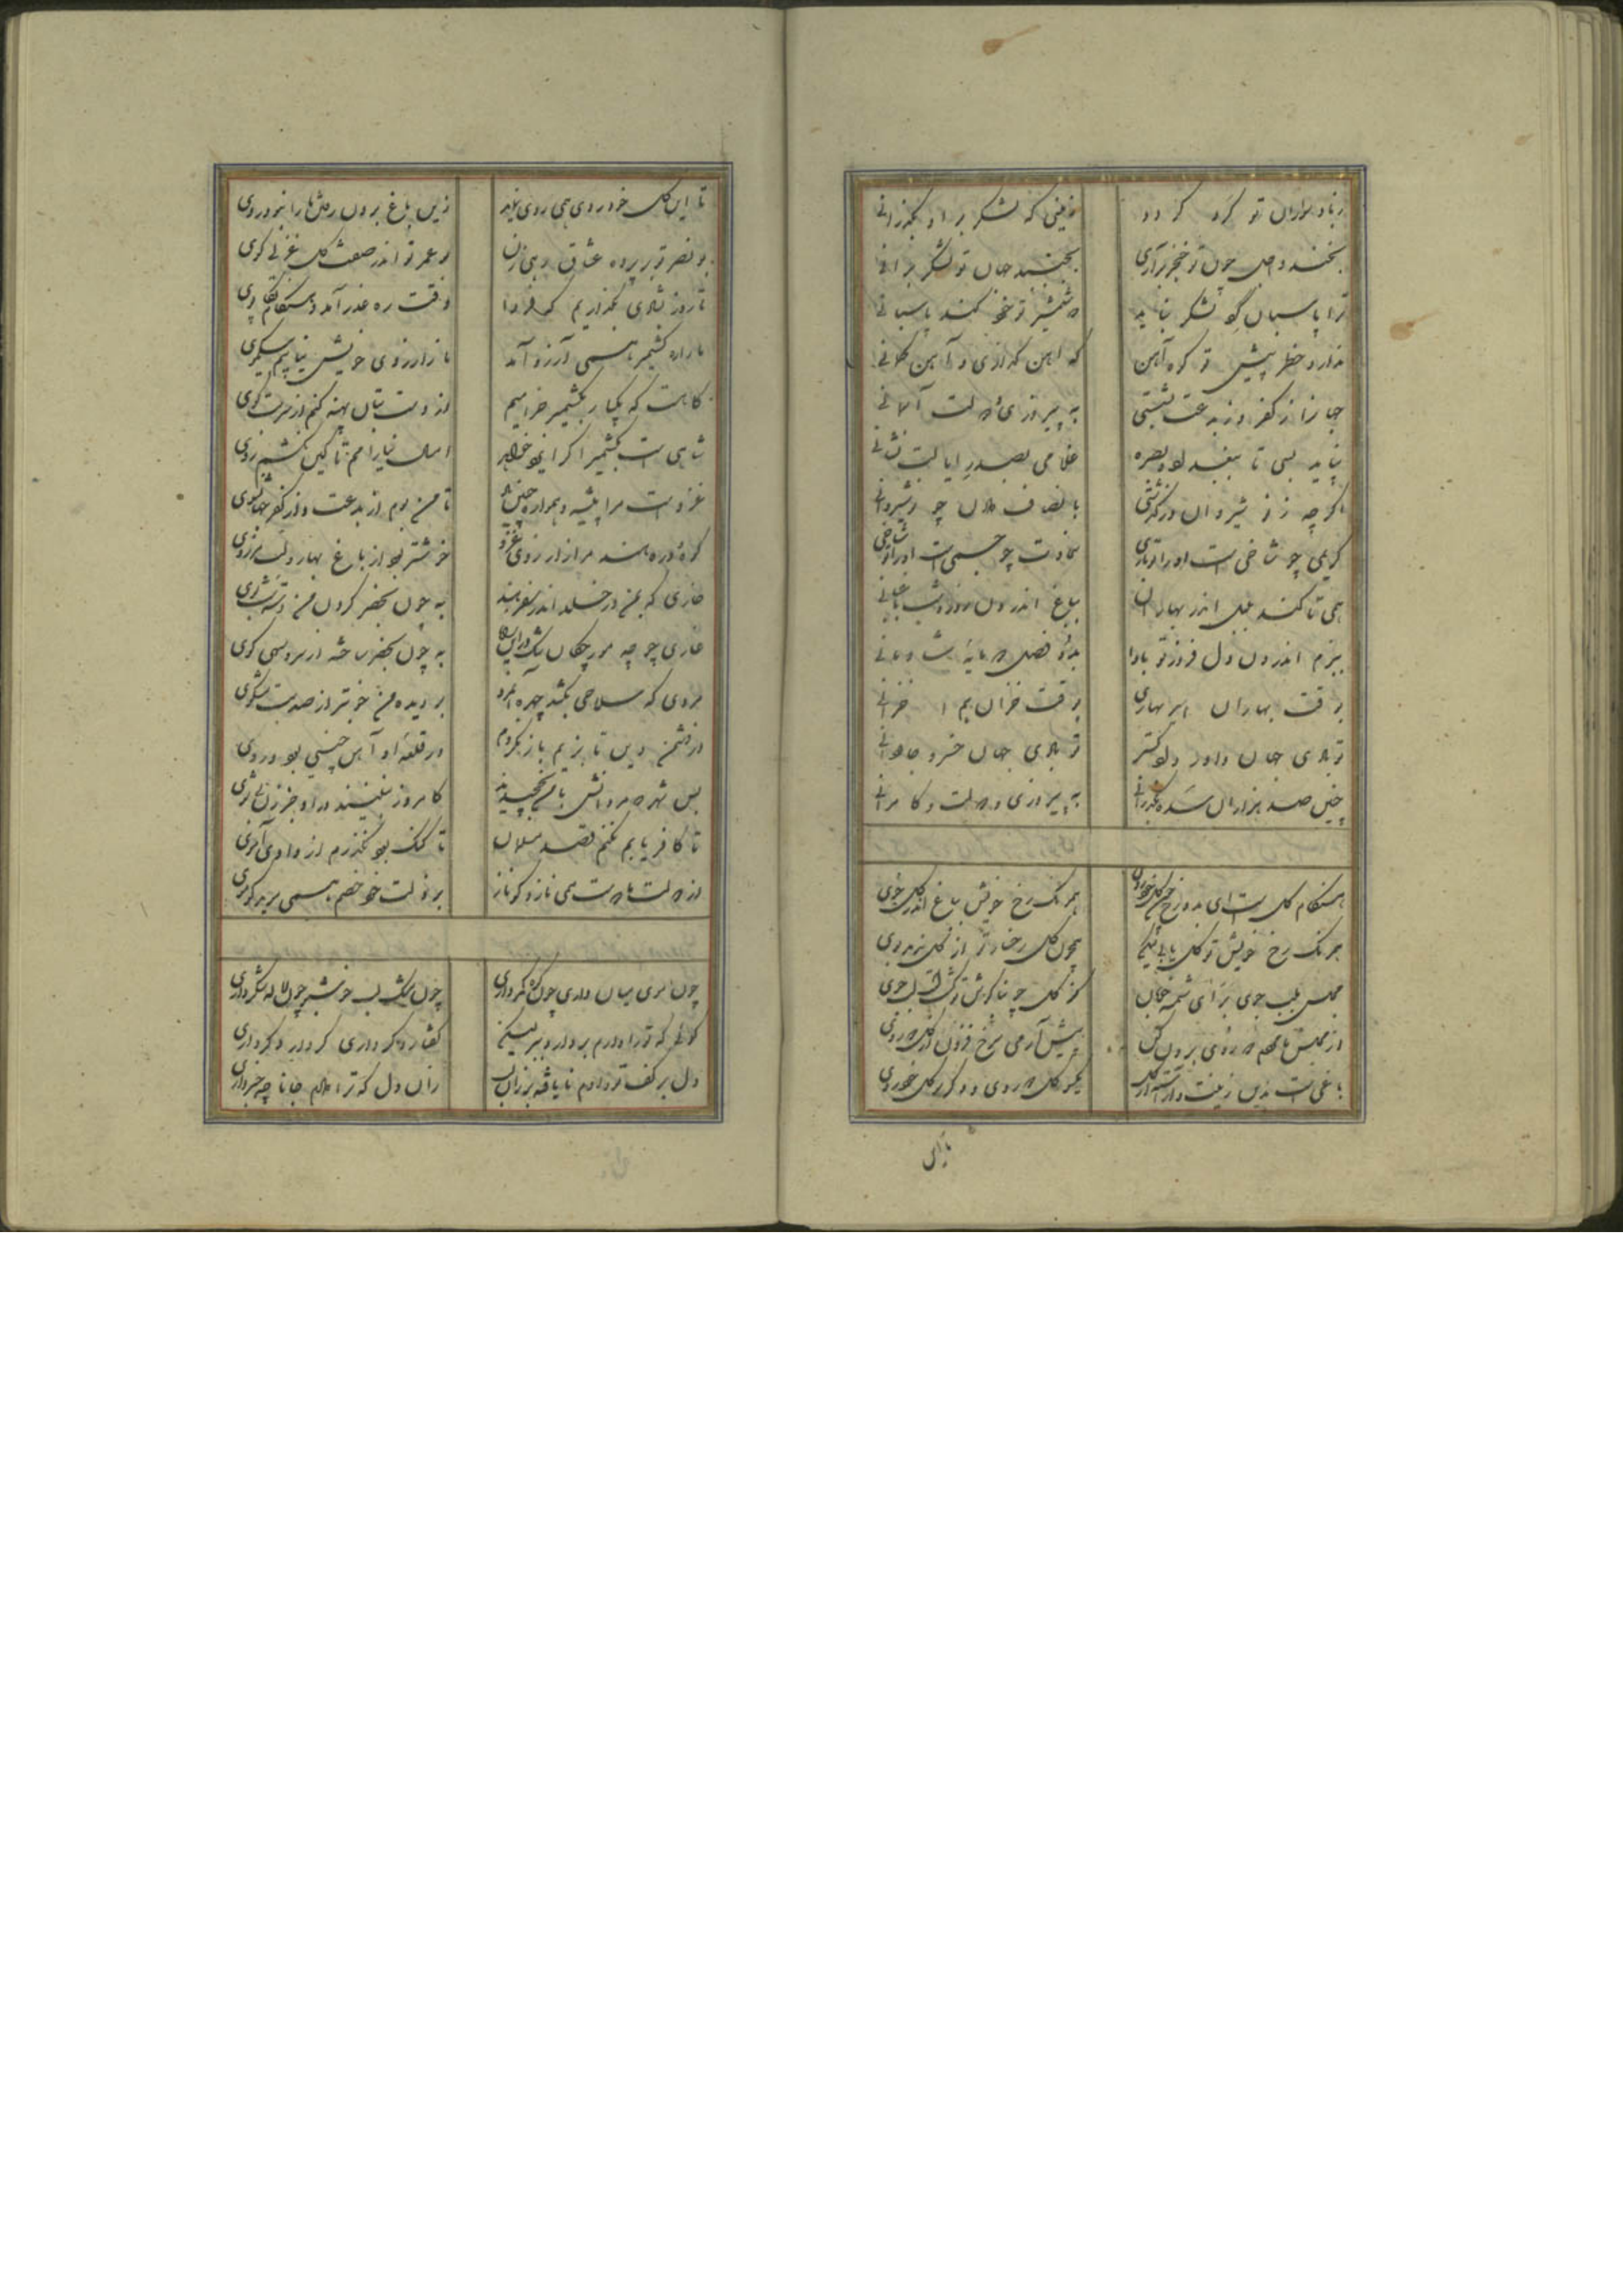 زباد سواران تو گرد گردد زمینی که لشکر بر او بگذرانی
بخندد اجل چون تو خنجر برآری بجنبد جهان چون تو لشکر برانی
ترا پاسبان گو لشکر نباید که شمشیر تو خود کند پاسبانی
ندارد خطر پیش تو کوه آهن که آهن گدازی و آهن کمانی
جهان را ز کفر و ز بدعت بشستی به پیروزی و دولت آسمانی
نباید بسی تا ببغداد و بصره غلامی بصدر ایالت نشانی
اگر چه ز نوشیروان درگذشتی بانصاف دادن چو نوشیروانی
کریمی چو شاخی است او را تو باری سخاوت چو جسمی است او را تو جانی
همی تا کند بلبل اندر بهاران بباغ اندرون روز و شب باغبانی
ببزم اندرون دل فروز تو بادا بدو فصل دو مایه شادمانی
بوقت بهاران اسپر بهاری بوقت خزان هم خزانی
تو بادی جهان داور دادگستر تو بادی جهان خسرو جاودانی
چنین صد هزاران سده بگذرانی به پیروزی و دولت و کامرانی
هنگام گل است ای بدو رخ چون گل خودروی همرنگ رخ خویش بباغ اندر گل جوی
همرنگ رخ خویش تو گل یابی لیکن همچون گل رخسار تو آن گل ندهد بوی
مجلس بلب جوی بر ای شمسه خوبان کز گل چو بناگوش تو گشت لب جوی
از مجلس ما مردم دو روی برون کن پیش آر می سرخ فزون از گل دو روی
باغی است بدین زینت آراسته از گل یکسو گل دو روی و دگر سو گل خودروی
باای
تا این گل خودروی همی روی نماید زین باغ برون رفتن ما را نبود روی
بونصر تو در پرده عشاق رهی زن بوعمرو تو اندر صفت گل غزلی گوی
تا روز بشادی بگذاریم که فردا وقت ره غزو آمد و هنگام تکاپوی
ما را ره کشمیر همی آرزو آمد ما ز آرزوی خویش نتابیم به یک موی
گاه است که یکبار بکشمیر خرامیم از دست بتان پهنه کنیم از سر بت گوی
شاهی است بکشمیر اگر ایزد خواهد امسال نیارامم تا کین نکشم زوی
غزو است مرا پیشه و همواره چنین باد تا من بوم از بدعت و از کفر جهان شوی
کوه و دره هند مرا ز آرزوی غزو خوشتر بود از باغ بهار و لب مرزوی
خاری که بمن در خلد اندر سفر هند به چون بحضر در کف من دسته شب بوی
غاری چو چه مورچگان تنگ در این راه به چون بحضر ساخته از سرو سهی کوی
مردی که سلاحی بکشد چهره آن مرد بر دیده من خوبتر از صد بت مشکوی
در دشمن دین تا بزیم باز نگردم ور قلعه او آهن چینی بود و روی
بس شهر که مردانش با من بچخیدند کامروز نبینند در او جز زن بی شوی
تا کافر یابم نکنم قصد مسلمان تا گنگ بود نگذرم از وادی آموی
از دولت ما دوست همی نازد گو ناز بر ذلت خود خصم همی موید گو موی
چون موی میان داری چون کوه کمر داری چون مشک لب خوشتر چون لاله شکر داری
دل بر کف تو دادم نایافته بر زان لب زان دل که ترا دادم جانا چه خبر داری